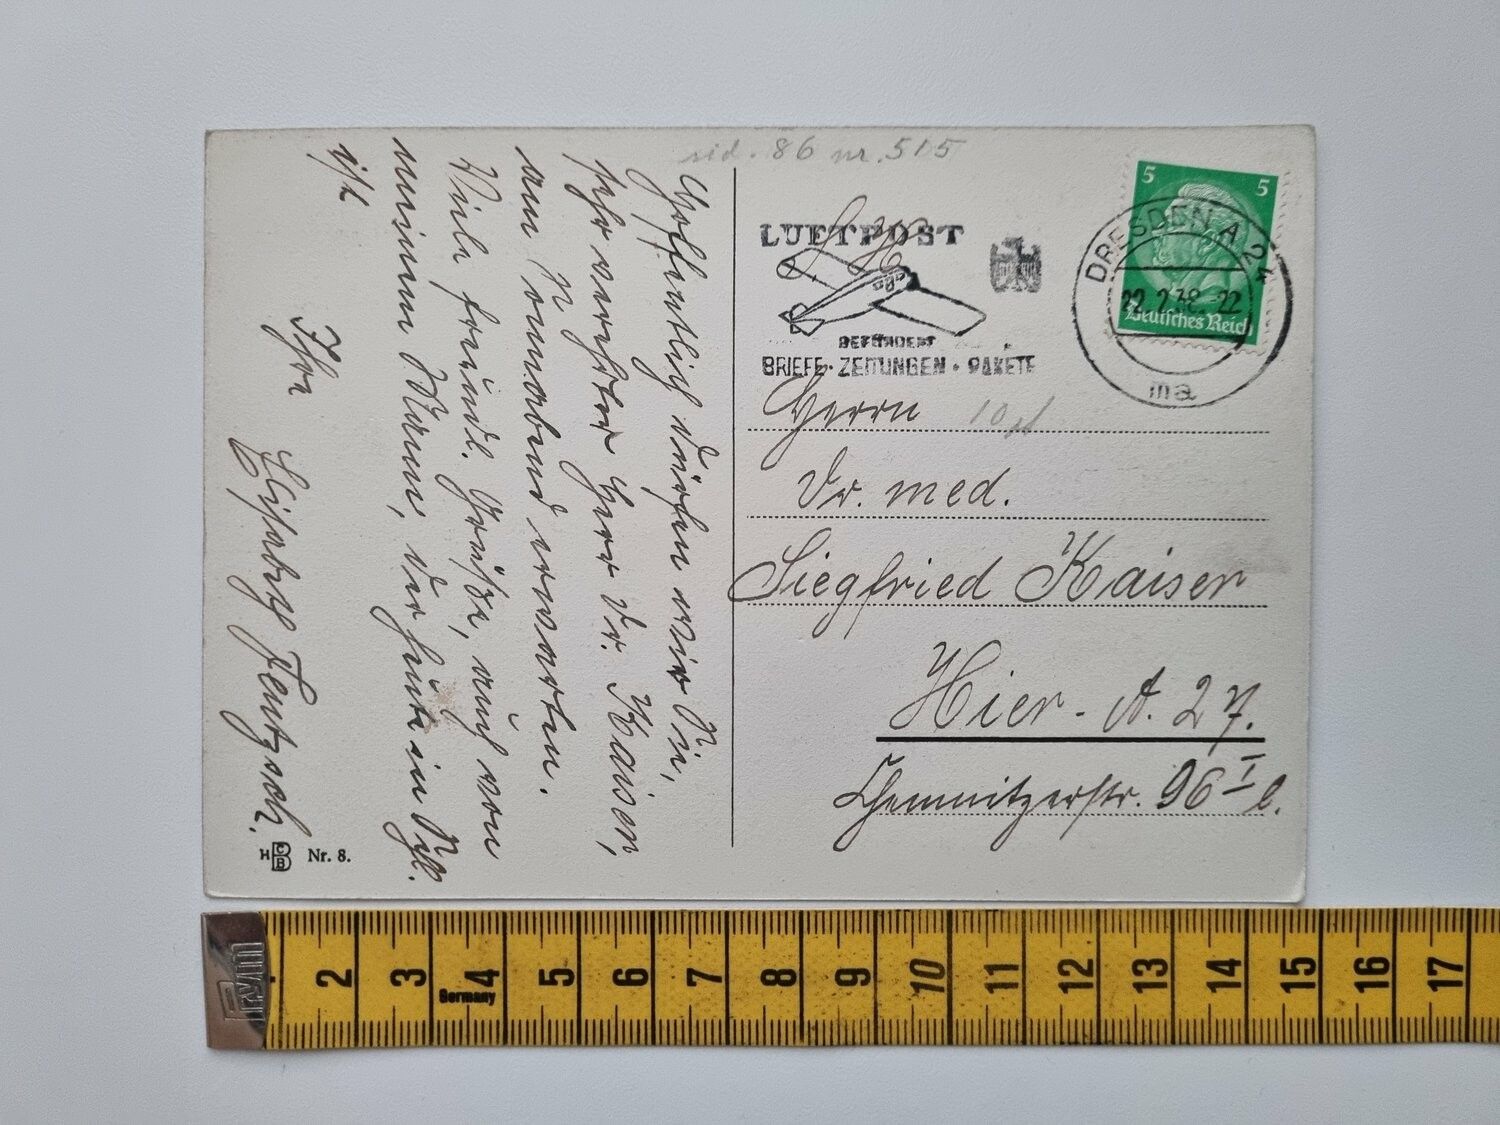 sid. 86 nr. 505
LUFTPOST
BEFÖRDERT
BRIEFE · ZEITUNGEN · PAKETE
5 5
Deutsches Reich
DRESDEN A 24
22.2.38.-22
ma
10
Herrn
Dr. med.
Siegfried Kaiser
Hier - A. 27.
Chemnitzerstr. 96 I l.
Hoffentlich dürfen wir Sie,
sehr verehrter Herr Dr. Kaiser,
am Sonnabend erwarten.
Viele freundl. Grüße, auch von
meinem Mann, der heute in
ist
Ihre
Fentzsch.
HCB Nr. 8.
PRYM
Germany
2 3 4 5 6 7 8 9 10 11 12 13 14 15 16 17